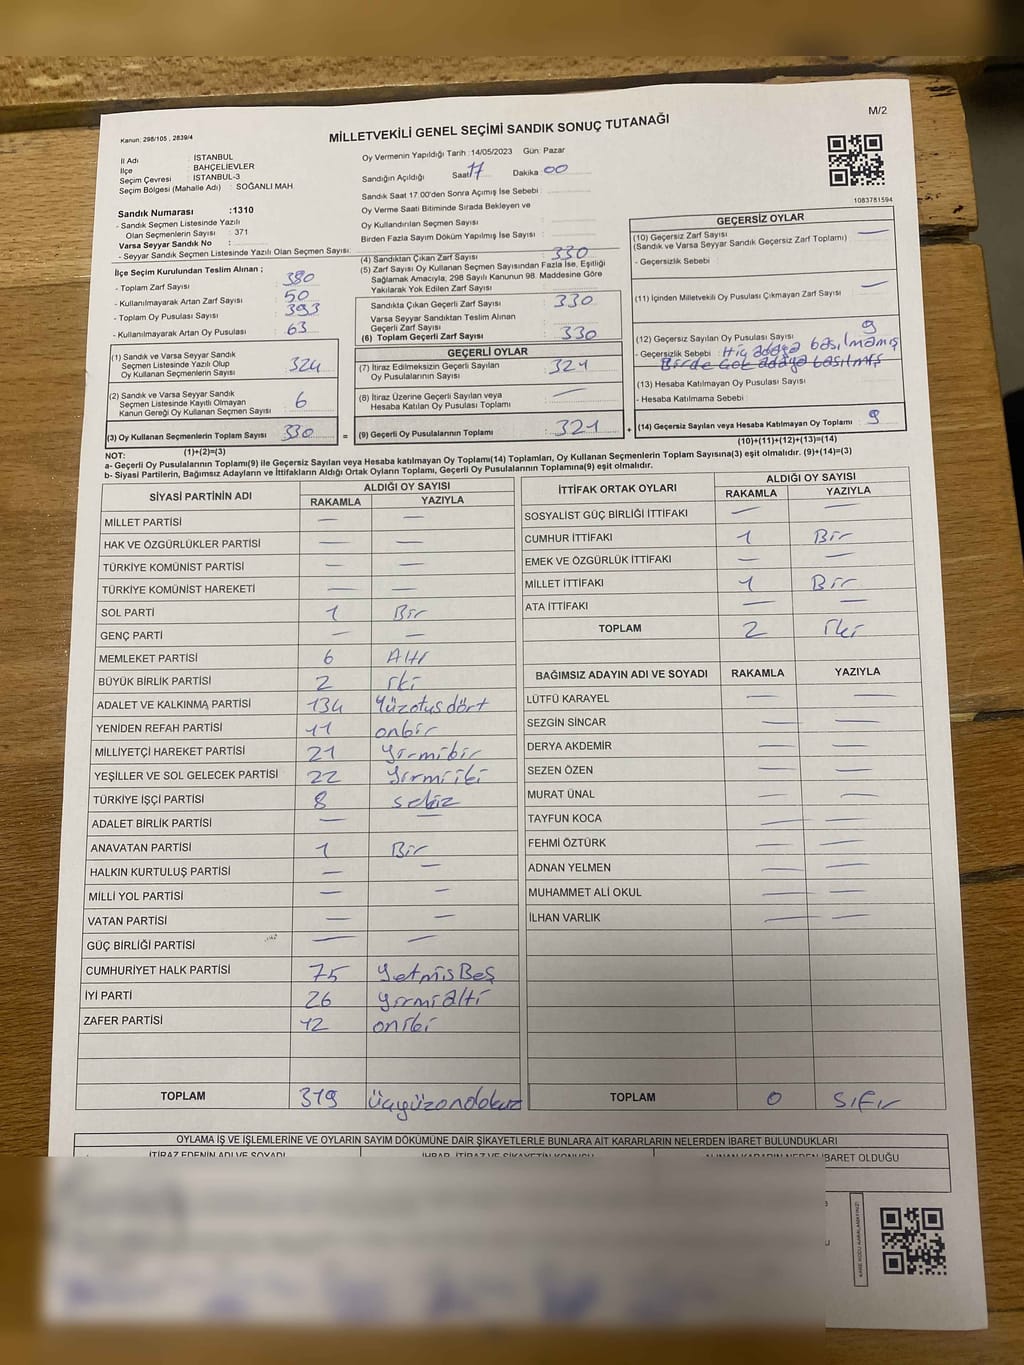 Kanun: 298/105 , 2839/4
MİLLETVEKİLİ GENEL SEÇİMİ SANDIK SONUÇ TUTANAĞI
M/2
İl Adı : İSTANBUL
İlçe : BAHÇELİEVLER
Seçim Çevresi : İSTANBUL-3
Seçim Bölgesi (Mahalle Adı) : SOĞANLI MAH.
Oy Vermenin Yapıldığı Tarih :14/05/2023 Gün: Pazar
Sandığın Açıldığı Saat 17 Dakika 00
Sandık Saat 17 00'den Sonra Açımış İse Sebebi :
Oy Verme Saati Bitiminde Sırada Bekleyen ve
Oy Kullandırılan Seçmen Sayısı :
Birden Fazla Sayım Döküm Yapılmış İse Sayısı :
1083781594
Sandık Numarası :1310
- Sandık Seçmen Listesinde Yazılı
Olan Seçmenlerin Sayısı : 371
Varsa Seyyar Sandık No :
- Seyyar Sandık Seçmen Listesinde Yazılı Olan Seçmen Sayısı:
İlçe Seçim Kurulundan Teslim Alınan ;
- Toplam Zarf Sayısı : 380
- Kullanılmayarak Artan Zarf Sayısı : 50
- Toplam Oy Pusulası Sayısı : 393
- Kullanılmayarak Artan Oy Pusulası : 63
(1) Sandık ve Varsa Seyyar Sandık
Seçmen Listesinde Yazılı Olup
Oy Kullanan Seçmenlerin Sayısı 324
(2) Sandık ve Varsa Seyyar Sandık
Seçmen Listesinde Kayıtlı Olmayan
Kanun Gereği Oy Kullanan Seçmen Sayısı 6
(3) Oy Kullanan Seçmenlerin Toplam Sayısı 330
(1)+(2)=(3)
(4) Sandıktan Çıkan Zarf Sayısı : 330
(5) Zarf Sayısı Oy Kullanan Seçmen Sayısından Fazla İse, Eşitliği
Sağlamak Amacıyla; 298 Sayılı Kanunun 98. Maddesine Göre
Yakılarak Yok Edilen Zarf Sayısı :
Sandıkta Çıkan Geçerli Zarf Sayısı : 330
Varsa Seyyar Sandıktan Teslim Alınan
Geçerli Zarf Sayısı :
(6) Toplam Geçerli Zarf Sayısı : 330
GEÇERLİ OYLAR
(7) İtiraz Edilmeksizin Geçerli Sayılan
Oy Pusulalarının Sayısı : 321
(8) İtiraz Üzerine Geçerli Sayılan veya
Hesaba Katılan Oy Pusulası Toplamı : —
= (9) Geçerli Oy Pusulalarının Toplamı : 321 +
GEÇERSİZ OYLAR
(10) Geçersiz Zarf Sayısı : —
(Sandık ve Varsa Seyyar Sandık Geçersiz Zarf Toplamı)
- Geçersizlik Sebebi :
(11) İçinden Milletvekili Oy Pusulası Çıkmayan Zarf Sayısı : —
(12) Geçersiz Sayılan Oy Pusulası Sayısı : 9
- Geçersizlik Sebebi : Hiç adaya basılmamış
Birde Çok adaya basılmış
(13) Hesaba Katılmayan Oy Pusulası Sayısı :
- Hesaba Katılmama Sebebi :
(14) Geçersiz Sayılan veya Hesaba Katılmayan Oy Toplamı : 9
(10)+(11)+(12)+(13)=(14)
NOT:
a- Geçerli Oy Pusulalarının Toplamı(9) ile Geçersiz Sayılan veya Hesaba katılmayan Oy Toplamı(14) Toplamları, Oy Kullanan Seçmenlerin Toplam Sayısına(3) eşit olmalıdır. (9)+(14)=(3)
b- Siyasi Partilerin, Bağımsız Adayların ve İttifakların Aldığı Ortak Oyların Toplamı, Geçerli Oy Pusulalarının Toplamına(9) eşit olmalıdır.
SİYASİ PARTİNİN ADI ALDIĞI OY SAYISI
RAKAMLA YAZIYLA
MİLLET PARTİSİ — —
HAK VE ÖZGÜRLÜKLER PARTİSİ — —
TÜRKİYE KOMÜNİST PARTİSİ — —
TÜRKİYE KOMÜNİST HAREKETİ — —
SOL PARTİ 1 Bir
GENÇ PARTİ — —
MEMLEKET PARTİSİ 6 Altı
BÜYÜK BİRLİK PARTİSİ 2 iki
ADALET VE KALKINMA PARTİSİ 134 Yüzotusdört
YENİDEN REFAH PARTİSİ 11 onbir
MİLLİYETÇİ HAREKET PARTİSİ 21 yirmibir
YEŞİLLER VE SOL GELECEK PARTİSİ 22 yirmiiki
TÜRKİYE İŞÇİ PARTİSİ 8 sekiz
ADALET BİRLİK PARTİSİ — —
ANAVATAN PARTİSİ 1 Bir
HALKIN KURTULUŞ PARTİSİ — —
MİLLİ YOL PARTİSİ — —
VATAN PARTİSİ — —
GÜÇ BİRLİĞİ PARTİSİ — —
CUMHURİYET HALK PARTİSİ 75 YetmisBeş
İYİ PARTİ 26 yirmialti
ZAFER PARTİSİ 12 oniki
TOPLAM 319 üçyüzondokuz
İTTİFAK ORTAK OYLARI ALDIĞI OY SAYISI
RAKAMLA YAZIYLA
SOSYALİST GÜÇ BİRLİĞİ İTTİFAKI — —
CUMHUR İTTİFAKI 1 Bir
EMEK VE ÖZGÜRLÜK İTTİFAKI — —
MİLLET İTTİFAKI 1 Bir
ATA İTTİFAKI — —
TOPLAM 2 iki
BAĞIMSIZ ADAYIN ADI VE SOYADI RAKAMLA YAZIYLA
LÜTFÜ KARAYEL — —
SEZGİN SİNCAR — —
DERYA AKDEMİR — —
SEZEN ÖZEN — —
MURAT ÜNAL — —
TAYFUN KOCA — —
FEHMİ ÖZTÜRK — —
ADNAN YELMEN — —
MUHAMMET ALİ OKUL — —
İLHAN VARLIK — —
TOPLAM 0 sıfır
OYLAMA İŞ VE İŞLEMLERİNE VE OYLARIN SAYIM DÖKÜMÜNE DAİR ŞİKAYETLERLE BUNLARA AİT KARARLARIN NELERDEN İBARET BULUNDUKLARI
İTİRAZ EDENİN ADI VE SOYADI İHBAR, İTİRAZ VE ŞİKAYETİN KONUSU ALINAN KARARIN NEDEN İBARET OLDUĞU